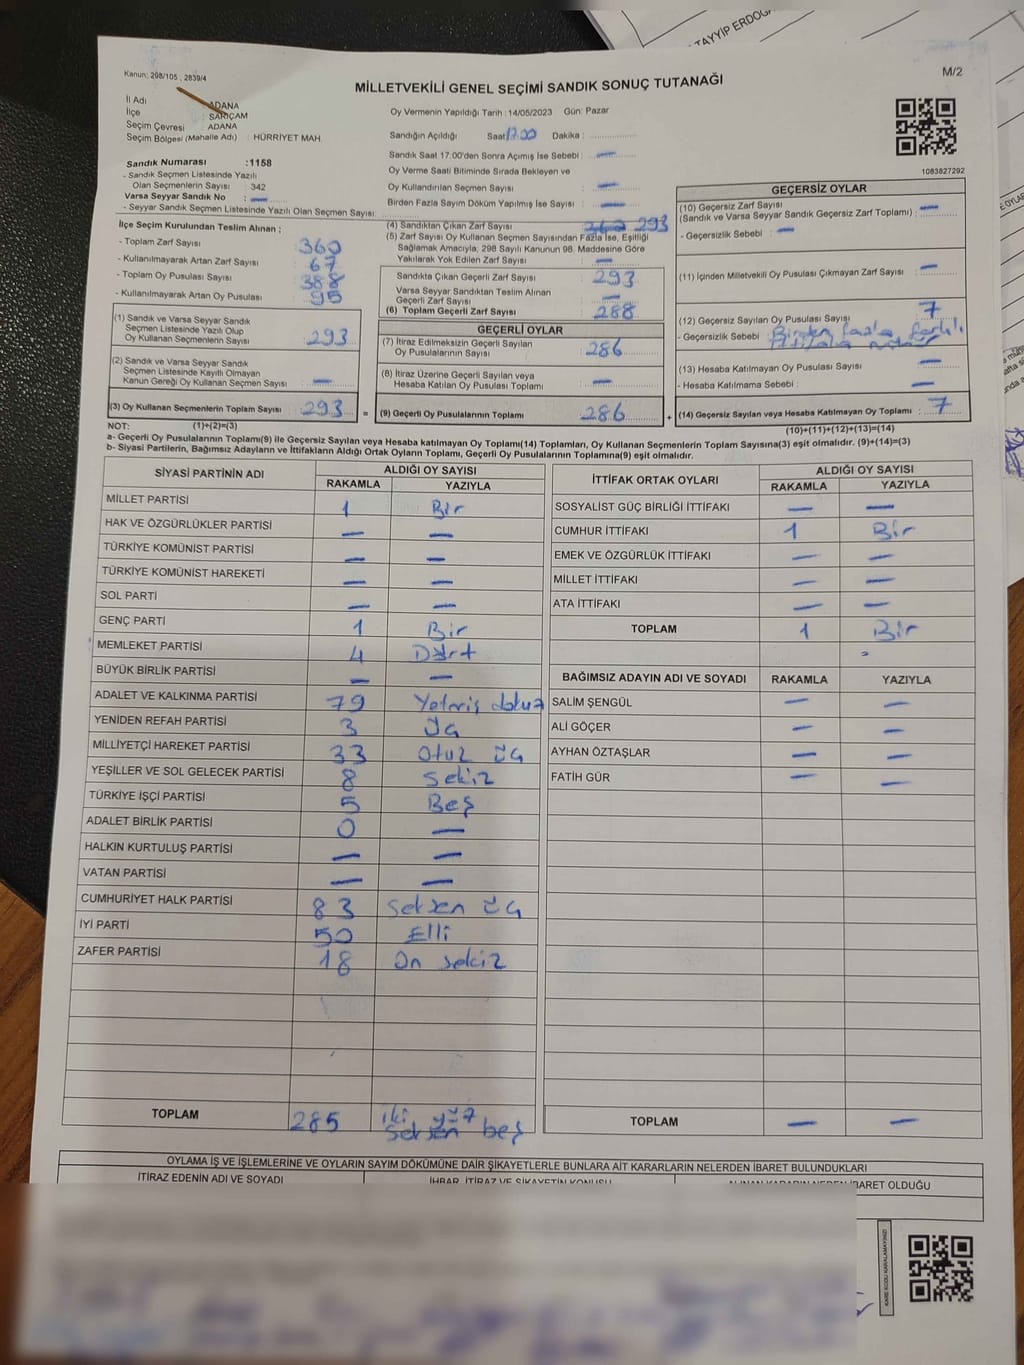 TAYYIP ERDOĞ
Kanun: 298/105 , 2839/4
MİLLETVEKİLİ GENEL SEÇİMİ SANDIK SONUÇ TUTANAĞI
M/2
İl Adı : ADANA
İlçe : SARIÇAM
Seçim Çevresi : ADANA
Seçim Bölgesi (Mahalle Adı) : HÜRRİYET MAH.
Oy Vermenin Yapıldığı Tarih : 14/05/2023 Gün: Pazar
Sandığın Açıldığı Saat 17.00 Dakika :
Sandık Saat 17:00'den Sonra Açımış İse Sebebi : —
Oy Verme Saati Bitiminde Sırada Bekleyen ve
Oy Kullandırılan Seçmen Sayısı : —
Birden Fazla Sayım Döküm Yapılmış İse Sayısı : —
1083827292
Sandık Numarası :1158
- Sandık Seçmen Listesinde Yazılı
Olan Seçmenlerin Sayısı : 342
Varsa Seyyar Sandık No : —
- Seyyar Sandık Seçmen Listesinde Yazılı Olan Seçmen Sayısı:
İlçe Seçim Kurulundan Teslim Alınan ;
- Toplam Zarf Sayısı : 360
- Kullanılmayarak Artan Zarf Sayısı : 67
- Toplam Oy Pusulası Sayısı : 388
- Kullanılmayarak Artan Oy Pusulası : 95
(1) Sandık ve Varsa Seyyar Sandık
Seçmen Listesinde Yazılı Olup
Oy Kullanan Seçmenlerin Sayısı : 293
(2) Sandık ve Varsa Seyyar Sandık
Seçmen Listesinde Kayıtlı Olmayan
Kanun Gereği Oy Kullanan Seçmen Sayısı : —
(3) Oy Kullanan Seçmenlerin Toplam Sayısı : 293 =
(4) Sandıktan Çıkan Zarf Sayısı : 293
(5) Zarf Sayısı Oy Kullanan Seçmen Sayısından Fazla İse, Eşitliği
Sağlamak Amacıyla, 298 Sayılı Kanunun 98. Maddesine Göre
Yakılarak Yok Edilen Zarf Sayısı : —
Sandıkta Çıkan Geçerli Zarf Sayısı : 293
Varsa Seyyar Sandıktan Teslim Alınan
Geçerli Zarf Sayısı : —
(6) Toplam Geçerli Zarf Sayısı : 288
GEÇERLİ OYLAR
(7) İtiraz Edilmeksizin Geçerli Sayılan
Oy Pusulalarının Sayısı : 286
(8) İtiraz Üzerine Geçerli Sayılan veya
Hesaba Katılan Oy Pusulası Toplamı : —
(9) Geçerli Oy Pusulalarının Toplamı : 286 +
GEÇERSİZ OYLAR
(10) Geçersiz Zarf Sayısı
(Sandık ve Varsa Seyyar Sandık Geçersiz Zarf Toplamı) : —
- Geçersizlik Sebebi : —
(11) İçinden Milletvekili Oy Pusulası Çıkmayan Zarf Sayısı : —
(12) Geçersiz Sayılan Oy Pusulası Sayısı : 7
- Geçersizlik Sebebi : Birden fazla farklı
(13) Hesaba Katılmayan Oy Pusulası Sayısı : —
- Hesaba Katılmama Sebebi : —
(14) Geçersiz Sayılan veya Hesaba Katılmayan Oy Toplamı : 7
NOT: (1)+(2)=(3)
(10)+(11)+(12)+(13)=(14)
a- Geçerli Oy Pusulalarının Toplamı(9) ile Geçersiz Sayılan veya Hesaba katılmayan Oy Toplamı(14) Toplamları, Oy Kullanan Seçmenlerin Toplam Sayısına(3) eşit olmalıdır. (9)+(14)=(3)
b- Siyasi Partilerin, Bağımsız Adayların ve İttifakların Aldığı Ortak Oyların Toplamı, Geçerli Oy Pusulalarının Toplamına(9) eşit olmalıdır.
SİYASİ PARTİNİN ADI ALDIĞI OY SAYISI
RAKAMLA YAZIYLA
MİLLET PARTİSİ 1 Bir
HAK VE ÖZGÜRLÜKLER PARTİSİ — —
TÜRKİYE KOMÜNİST PARTİSİ — —
TÜRKİYE KOMÜNİST HAREKETİ — —
SOL PARTİ — —
GENÇ PARTİ 1 Bir
MEMLEKET PARTİSİ 4 Dört
BÜYÜK BİRLİK PARTİSİ — —
ADALET VE KALKINMA PARTİSİ 79 Yetmiş dokuz
YENİDEN REFAH PARTİSİ 3 Üç
MİLLİYETÇİ HAREKET PARTİSİ 33 Otuz üç
YEŞİLLER VE SOL GELECEK PARTİSİ 8 Sekiz
TÜRKİYE İŞÇİ PARTİSİ 5 Beş
ADALET BİRLİK PARTİSİ 0 —
HALKIN KURTULUŞ PARTİSİ — —
VATAN PARTİSİ — —
CUMHURİYET HALK PARTİSİ 83 Seksen üç
İYİ PARTİ 50 Elli
ZAFER PARTİSİ 18 On sekiz
TOPLAM 285 iki yüz
seksen beş
İTTİFAK ORTAK OYLARI ALDIĞI OY SAYISI
RAKAMLA YAZIYLA
SOSYALİST GÜÇ BİRLİĞİ İTTİFAKI — —
CUMHUR İTTİFAKI 1 Bir
EMEK VE ÖZGÜRLÜK İTTİFAKI — —
MİLLET İTTİFAKI — —
ATA İTTİFAKI — —
TOPLAM 1 Bir
BAĞIMSIZ ADAYIN ADI VE SOYADI RAKAMLA YAZIYLA
SALİM ŞENGÜL — —
ALİ GÖÇER — —
AYHAN ÖZTAŞLAR — —
FATİH GÜR — —
TOPLAM — —
OYLAMA İŞ VE İŞLEMLERİNE VE OYLARIN SAYIM DÖKÜMÜNE DAİR ŞİKAYETLERLE BUNLARA AİT KARARLARIN NELERDEN İBARET BULUNDUKLARI
İTİRAZ EDENİN ADI VE SOYADI İHBAR, İTİRAZ VE ŞİKAYETİN KONUSU ALINAN KARARIN NEDEN İBARET OLDUĞU
KARE KODU KARALAMAYINIZ!